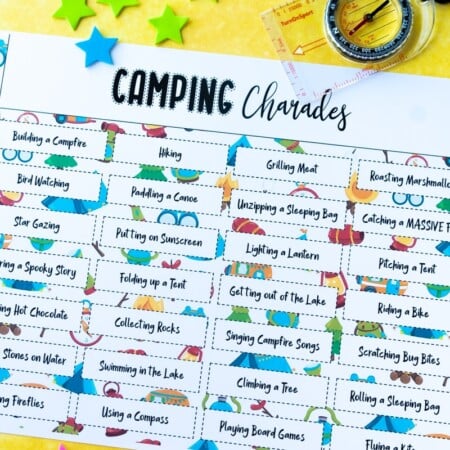 TurnOnSport
CAMPING Charades
Building a Campfire
Hiking
Grilling Meat
Roasting Marshmallo
Bird Watching
Paddling a Canoe
Unzipping a Sleeping Bag
Catching a MASSIVE F
Star Gazing
Putting on Sunscreen
Lighting a Lantern
Pitching a Tent
ring a Spooky Story
Folding up a Tent
Getting out of the Lake
Riding a Bike
ng Hot Chocolate
Collecting Rocks
Singing Campfire Songs
Scratching Bug Bites
Stones on Water
Swimming in the Lake
Climbing a Tree
Rolling a Sleeping Bag
ng Fireflies
Using a Compass
Playing Board Games
Flying a Kite